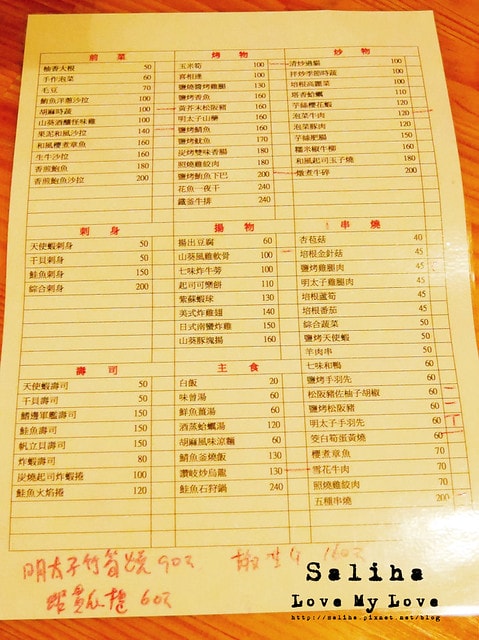 前菜
柚香大根 50
手作泡菜 60
毛豆 70
鮪魚洋蔥沙拉 100
胡麻時蔬 100
山葵酒釀怪味雞 100
果泥和風沙拉 140
和風櫻煮章魚 160
生牛沙拉 160
香煎鮑魚 180
香煎鮑魚沙拉 200
烤物
玉米筍 100
喜相逢 100
鹽燒醬烤雞腿 130
鹽烤香魚 160
黃芥末松阪豬 160
明太子山藥 160
鹽烤鯖魚 160
鹽烤魷魚 170
炭烤雙味香腸 180
照燒雞皎肉 180
鹽烤鮪魚下巴 200
花魚一夜干 240
鐵釜牛排 240
炒物
清炒過貓 100
拌炒季節時蔬 100
培根高麗菜 100
塔香蛤蠣 110
芋絲櫻花蝦 120
泡菜牛肉 120
泡菜豚肉 120
芋絲肥腸 150
糯米椒牛柳 160
和風起司玉子燒 180
燉煮牛碎 200
刺身
天使蝦刺身 50
干貝刺身 50
鮭魚刺身 150
綜合刺身 200
揚物
揚出豆腐 60
山葵風雞軟骨 100
七味炸牛蒡 100
起司可樂餅 110
紫蘇蝦球 130
美式炸雞翅 140
日式南蠻炸雞 150
山葵豚塊揚 160
串燒
杏苞菇 40
培根金針菇 45
鹽烤雞腿肉 45
明太子雞腿肉 45
培根蘆筍 45
培根番茄 45
綜合蔬菜 50
鹽烤天使蝦 50
羊肉串 50
七味和鴨 60
鹽烤手羽先 60
松阪豬佐柚子胡椒 60
鹽烤松阪豬 60
明太子手羽先 60
筊白筍蛋黃燒 60
櫻煮章魚 70
雪花牛肉 70
照燒雞皎肉 70
五種串燒 200
壽司
天使蝦壽司 50
干貝壽司 50
鰭邊軍艦壽司 150
鮭魚壽司 50
帆立貝壽司 50
炸蝦壽司 80
炭燒起司炸蝦捲 100
鮭魚火焰捲 120
主食
白飯 20
味曾湯 60
鮮魚薑湯 60
酒蒸蛤蠣湯 120
胡麻風味涼麵 60
鯖魚釜燒飯 130
讚岐炒烏龍 130
鮭魚石狩鍋 240
明太子竹筍燒 90元
160元
60元
Saliha
Love My Love
http://saliha.pixnet.net/blog